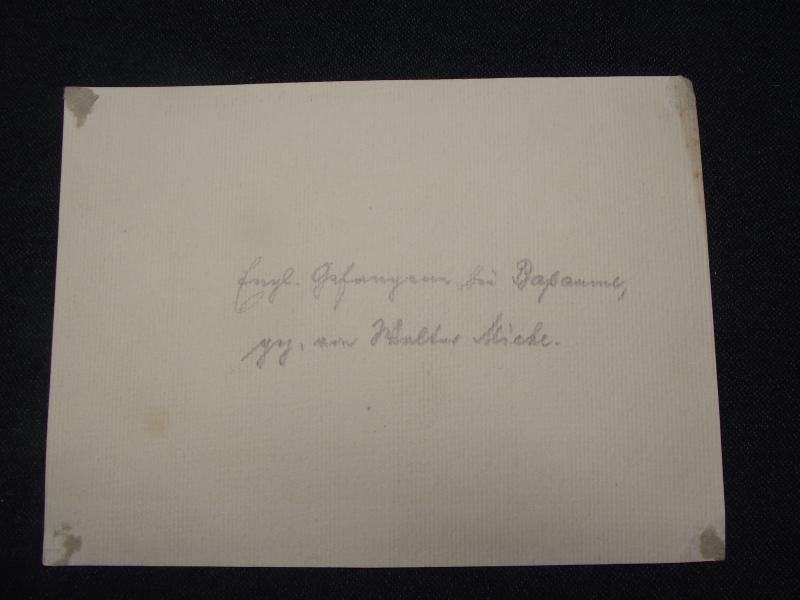 Engl. Gefangene bei Bapaume,
gez. von Walter Micke.